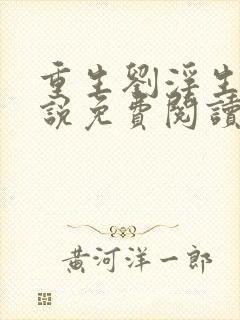 重生劉淫生
說免費閱讀
黃河洋一郎